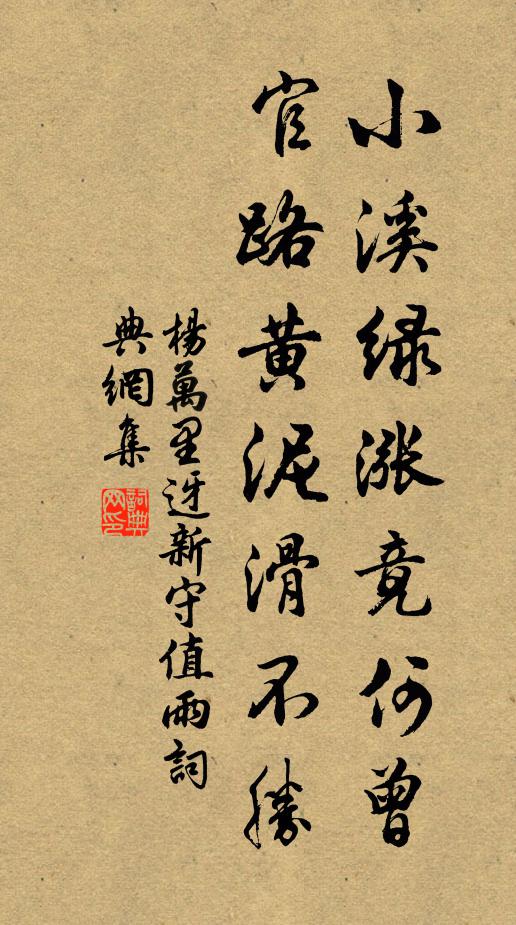 小溪绿涨竟何曾
官路黄泥滑不勝
楊萬里迓新守值雨詞
典網集
詞典网印